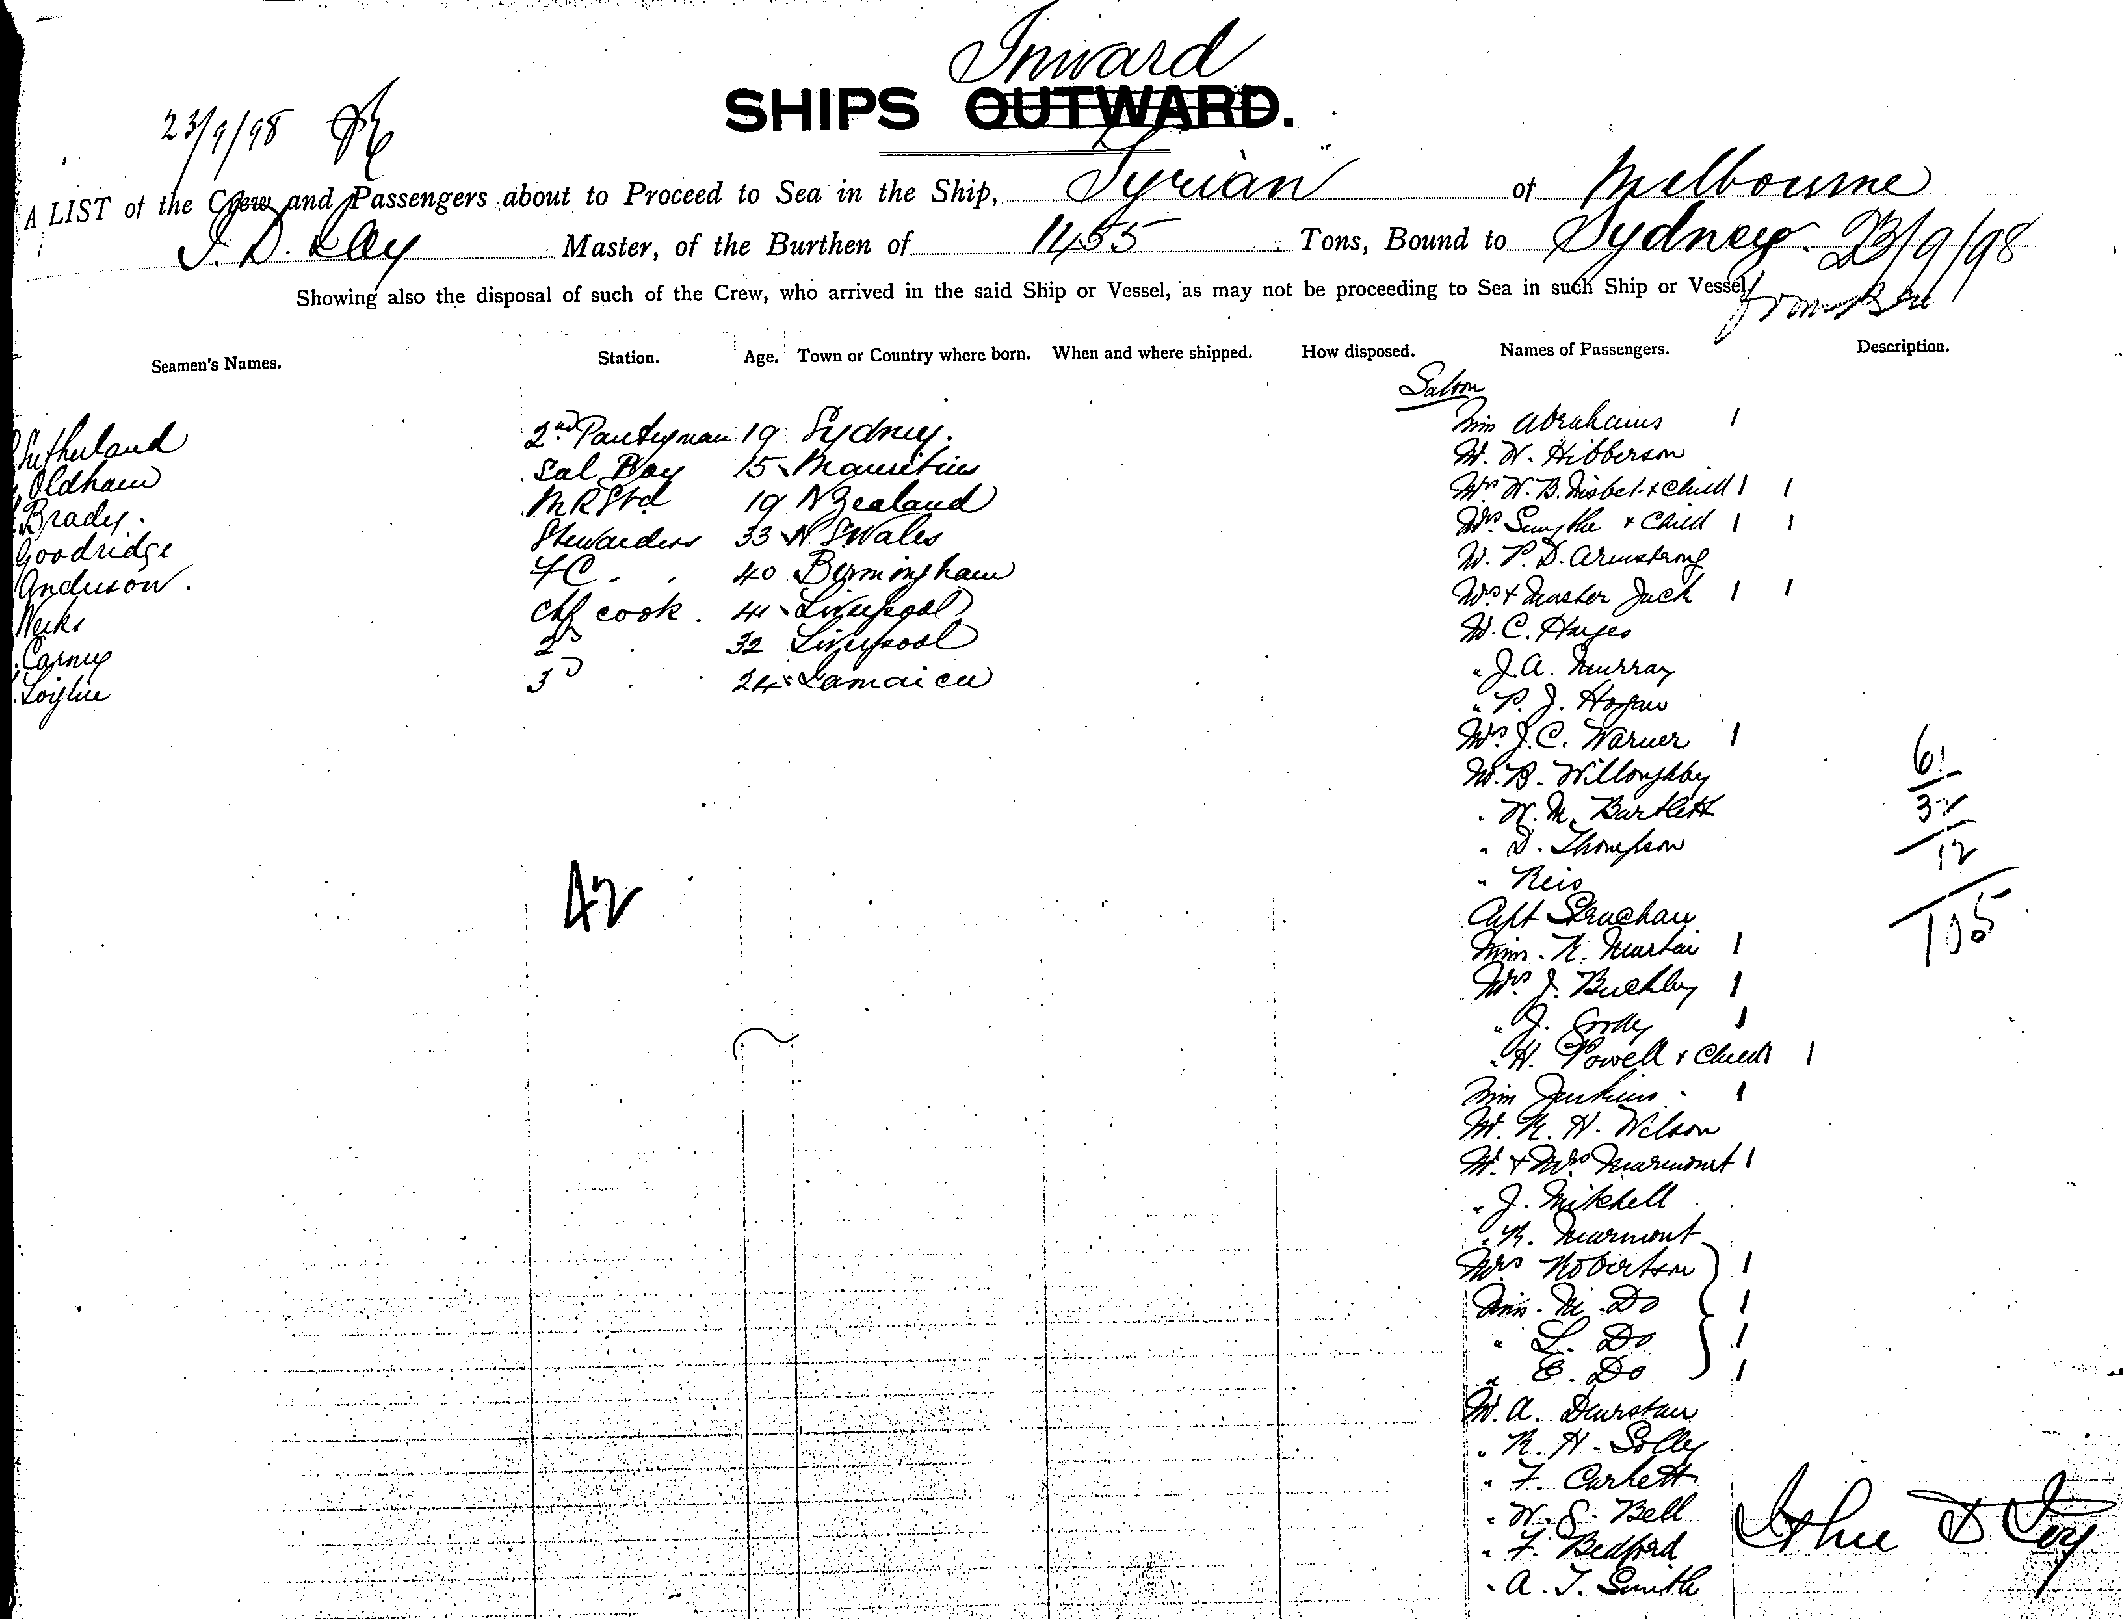 Inward
SHIPS OUTWARD.
23/9/98
A LIST of the Crew and Passengers about to Proceed to Sea in the Ship, Tyrian of Melbourne
Master, of the Burthen of 1455 Tons, Bound to Sydney. 23/9/98
Showing also the disposal of such of the Crew, who arrived in the said Ship or Vessel, as may not be proceeding to Sea in such Ship or Vessel,
from
Seamen's Names. Station. Age. Town or Country where born. When and where shipped. How disposed. Names of Passengers. Description.
Saloon
Sutherland 2nd Pantryman 19 Sydney.
Oldham Sal Boy 15 Mauritius
Brady. 19 N Zealand
Goodridge Stewardess 33 N S Wales
Anderson. 40 Birmingham
Weeks Chf cook. 41 Liverpool
Carney 2d 32 Liverpool
3d 24 Jamaica
Miss Abrahams 1
Mr. W. Hibberson
Mrs W. B. Nisbet & Child 1 1
Mrs. Smythe & Child 1 1
Mr. P. D. Armstrong
Mrs & Master Jack 1 1
Mr. C. Hayes
" J. A. Murray
" P. J. Hogan
Mrs. J. C. Warner 1
Mr. B. Willoughby
" W. M. Bartlett
" D. Thompson
" Reis
Capt Strachan
Miss. R. Martin 1
Mrs. J. Buckley 1
" J. 1
" H. Powell & Child 1 1
Miss Jenkins 1
Mr. R. H. Wilson
Mr. & Mrs Marmont 1
" J. Mitchell
" R. Marmont
Mrs Robertson 1
Miss. M. Do 1
" L. Do 1
" E. Do 1
Mr. A. Dunstan
" R. H. Solley
" F. Corlett
" W. S. Bell
" F. Bedford
" A. T. Smith
61
32
12
105
42